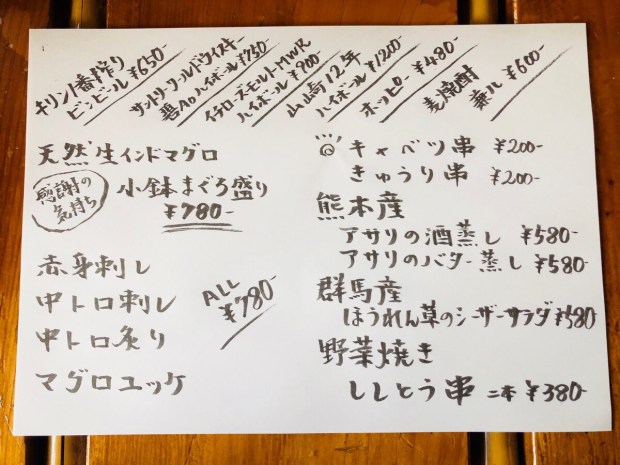 キリン1番搾り
ビンビール ¥650-
サントリーワールドウイスキー
碧Ao ハイボール ¥750-
イチローズモルトMWR
ハイボール ¥900
山崎12年
ハイボール ¥1200-
ホッピー ¥480-
麦焼酎
兼八 ¥600-
天然生インドマグロ
感謝の
気持ち
小鉢まぐろ盛り
¥780-
赤身刺し
中トロ刺し
中トロ炙り
マグロユッケ
ALL
¥780-
キャベツ串 ¥200-
きゅうり串 ¥200-
熊本産
アサリの酒蒸し ¥580-
アサリのバター蒸し ¥580-
群馬産
ほうれん草のシーザーサラダ ¥580
野菜焼き
ししとう串 二本 ¥380-